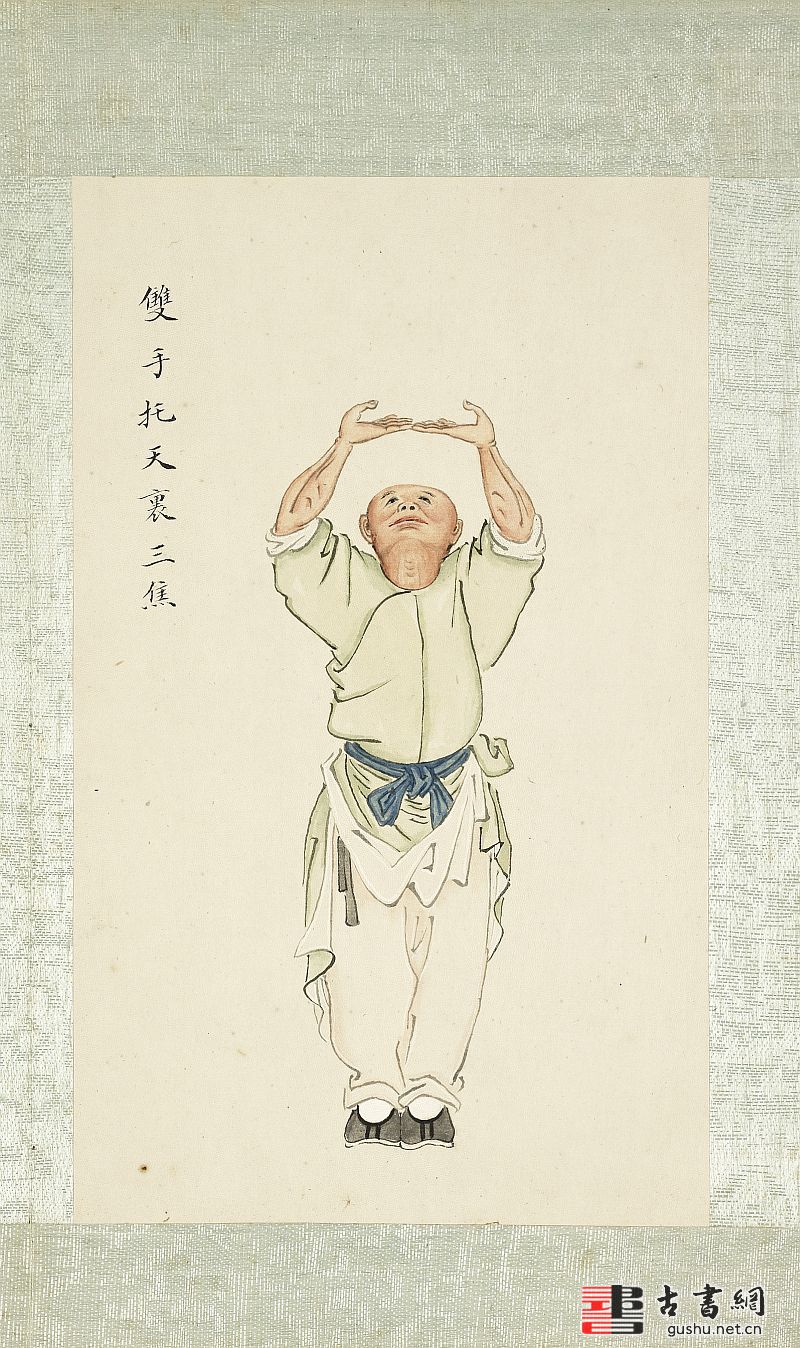 雙手托天裏三焦
古書網
gushu.net.cn